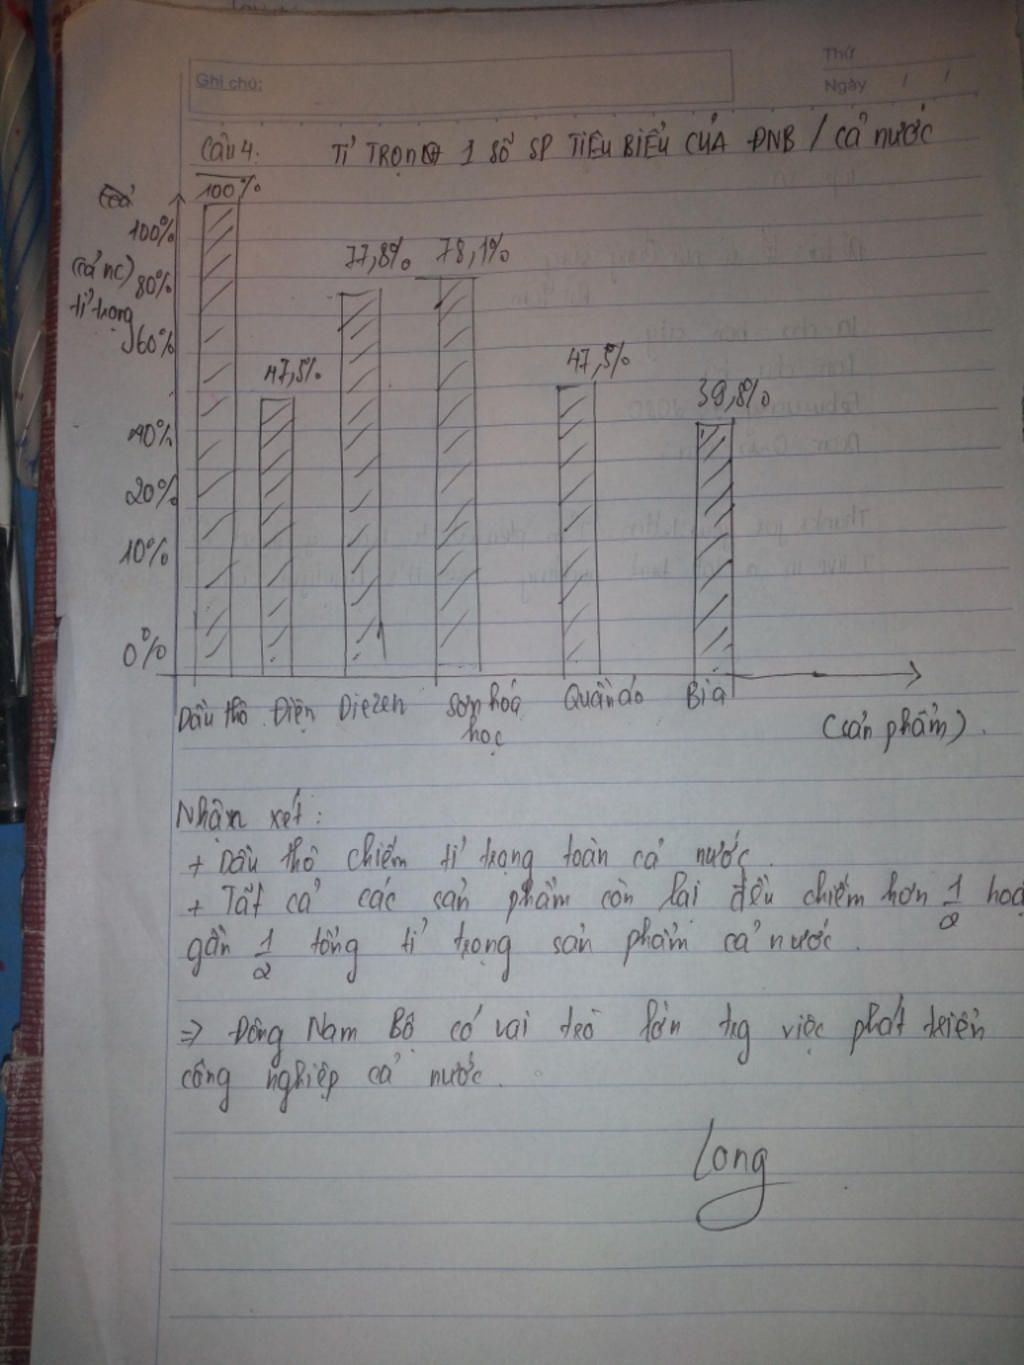 Ghi chú:
Thứ
Ngày / /
Câu 4: TỈ TRỌNG 1 SỐ SP TIÊU BIỂU CỦA ĐNB / CẢ NƯỚC
100%
100%
77,8% 78,1%
(cả nc) 80%
tỉ trọng
60%
47,5% 47,5%
39,8%
40%
20%
10%
0%
Dầu thô Điện Diezen Sơn hoá học Quần áo Bia
(sản phẩm).
Nhận xét:
+ Dầu thô chiếm tỉ trọng toàn cả nước.
+ Tất cả các sản phẩm còn lại đều chiếm hơn 1/2 hoặ
gần 1/2 tổng tỉ trọng sản phẩm cả nước.
=> Đông Nam Bộ có vai trò lớn trg việc phát triển
công nghiệp cả nước.
Long